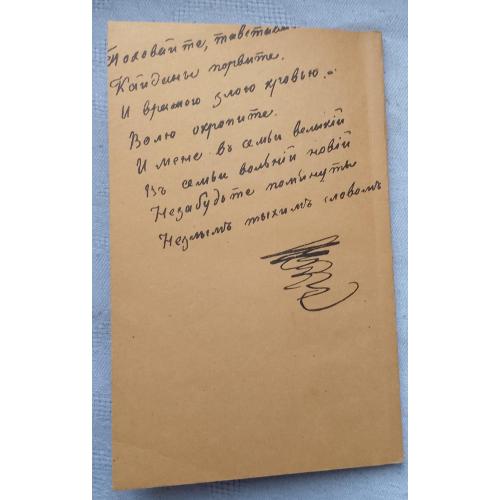 Поховайте, та вставай
Кайданы порвите.
И вражою злою кровью..
Волю окропите.
И мене въ семьи великій
Въ семьи вольній новій
Незабудьте помъянуты
Незлымъ тыхимъ словомъ